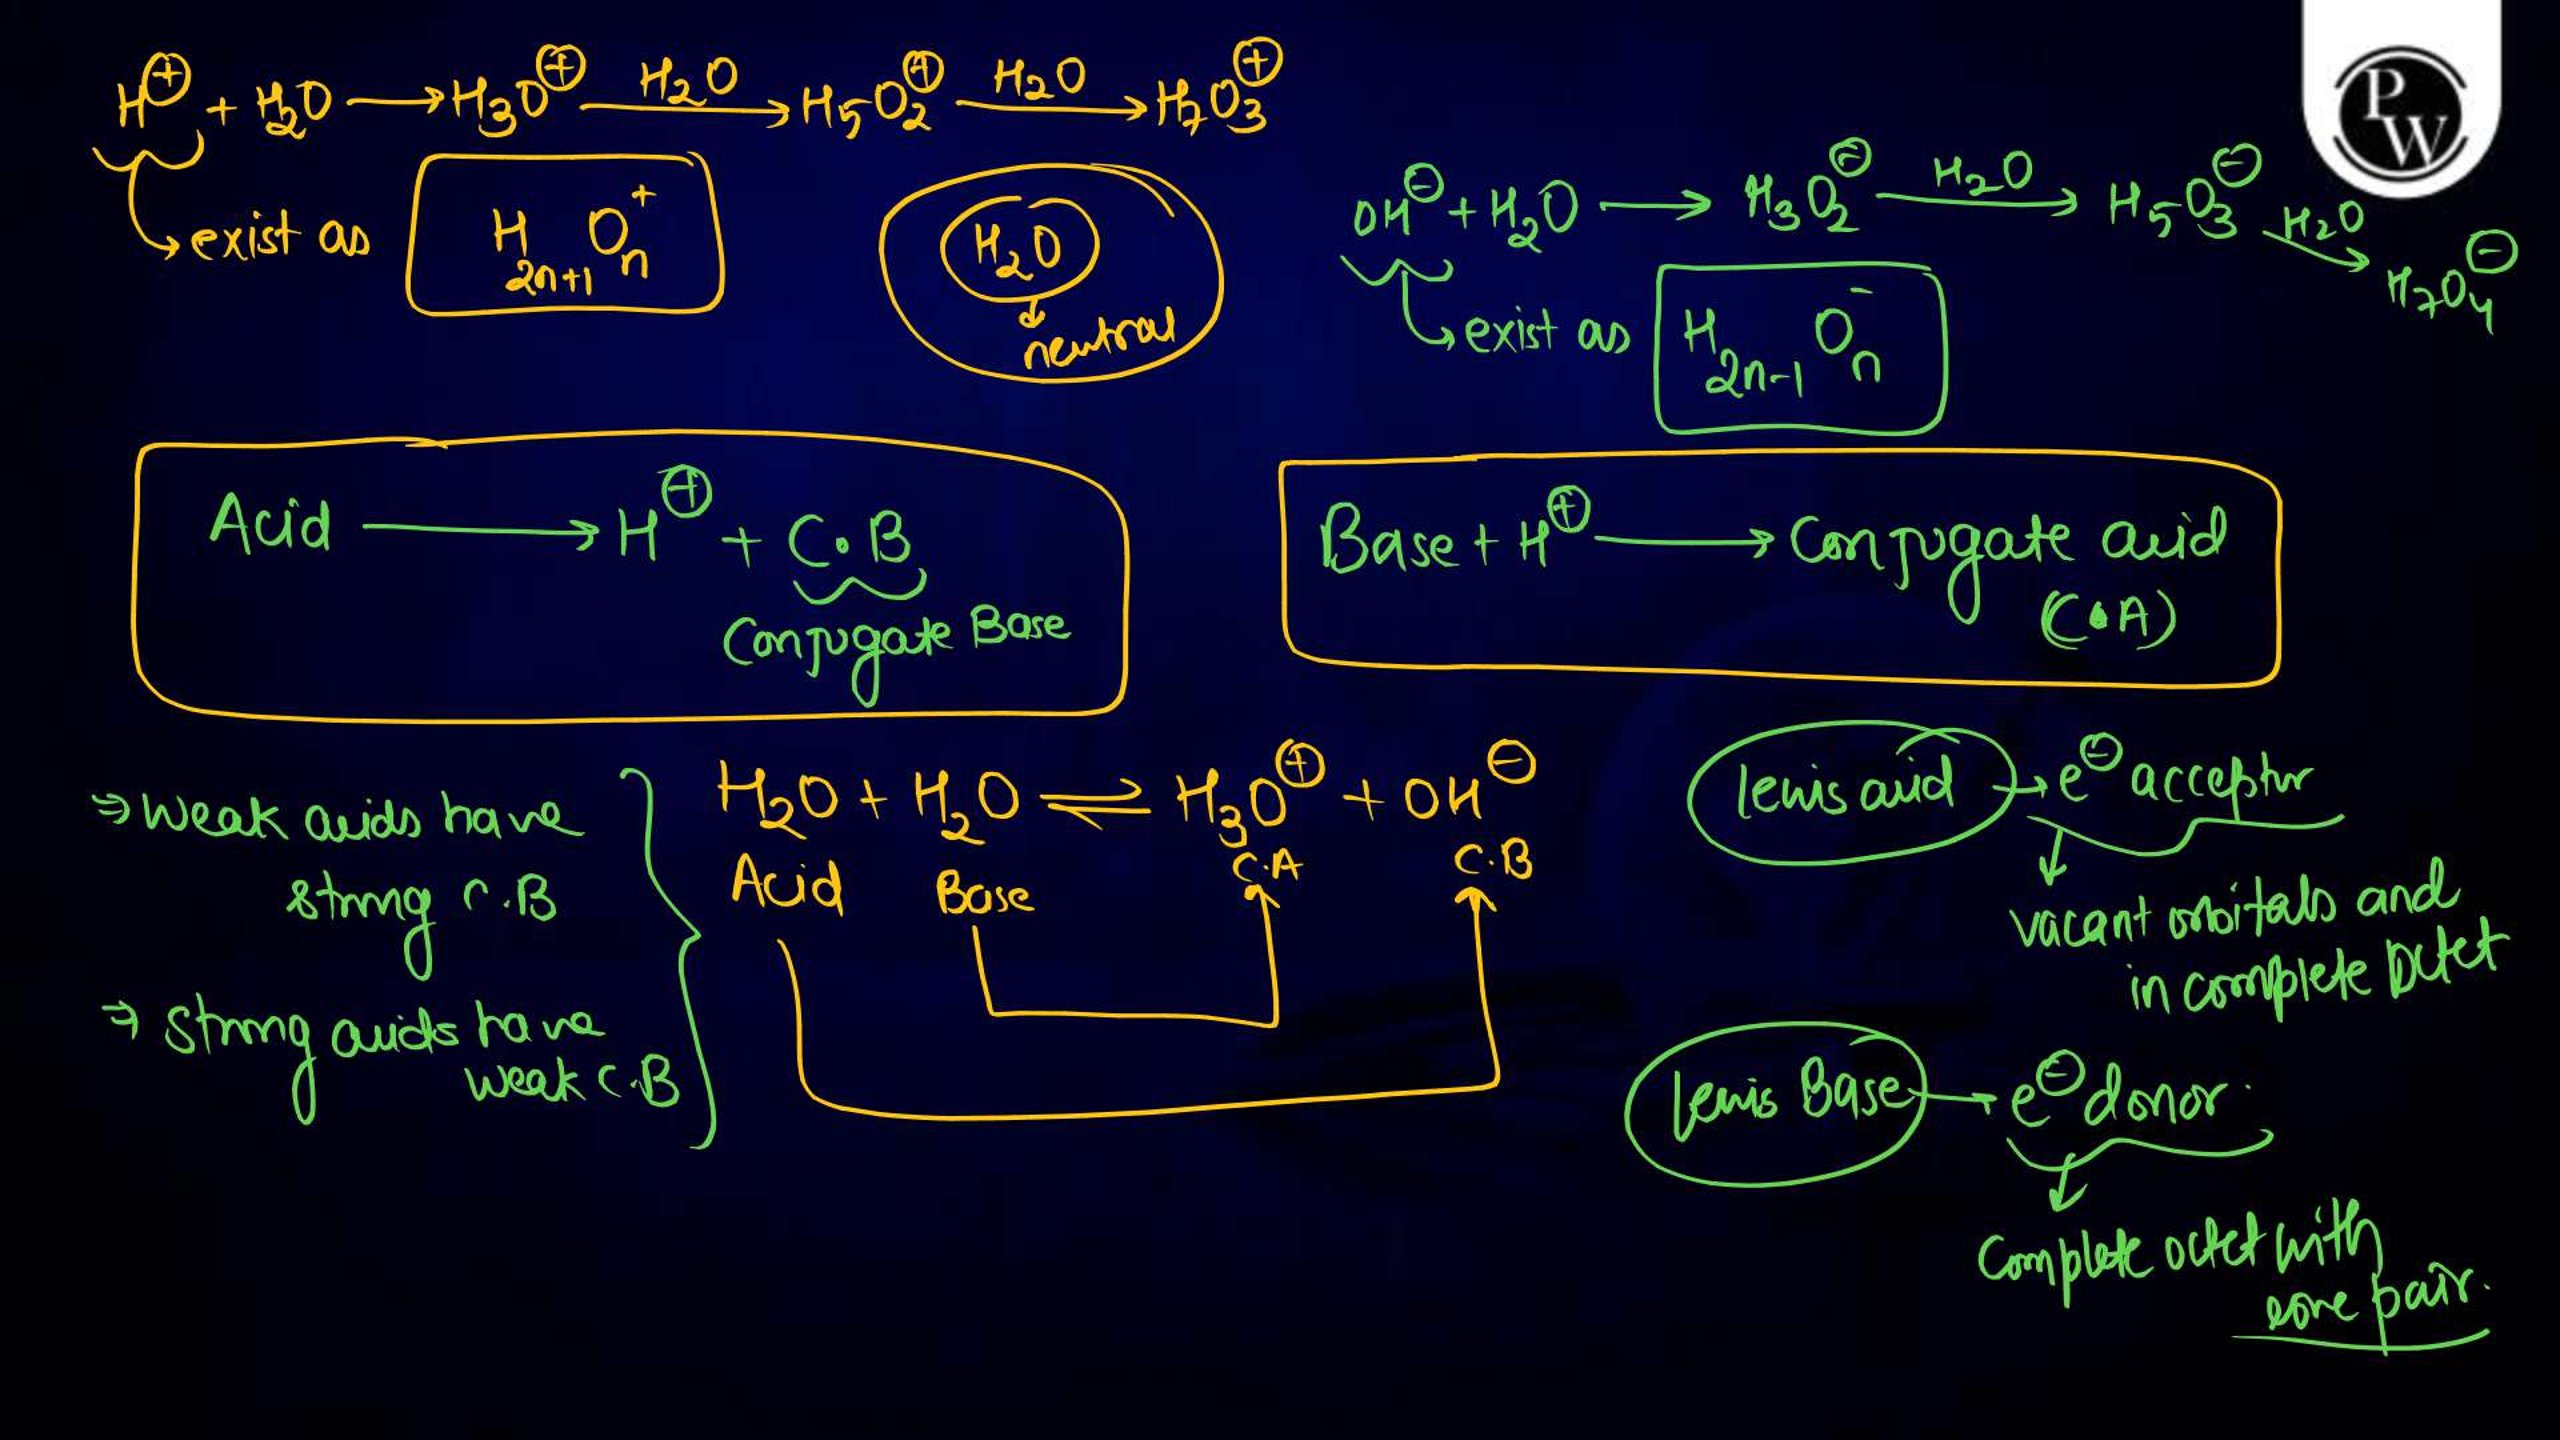 H⊕ + H₂O ⟶ H₃O⊕ —H₂O⟶ H₅O₂⊕ —H₂O⟶ H₇O₃⊕
exist as H₂ₙ₊₁Oₙ⁺
H₂O
neutral
OH⊖ + H₂O ⟶ H₃O₂⊖ —H₂O⟶ H₅O₃⊖ —H₂O⟶ H₇O₄⊖
exist as H₂ₙ₋₁Oₙ⁻
PW
Acid ⟶ H⊕ + C.B
Conjugate Base
Base + H⊕ ⟶ Conjugate acid
(C.A)
⇒ Weak acids have
strong C.B
⇒ Strong acids have
weak C.B
H₂O + H₂O ⇌ H₃O⊕ + OH⊖
Acid Base C.A C.B
lewis acid → e⊖ acceptor
vacant orbitals and
in complete Octet
lewis Base → e⊖ donor.
Complete octet with
lone pair.